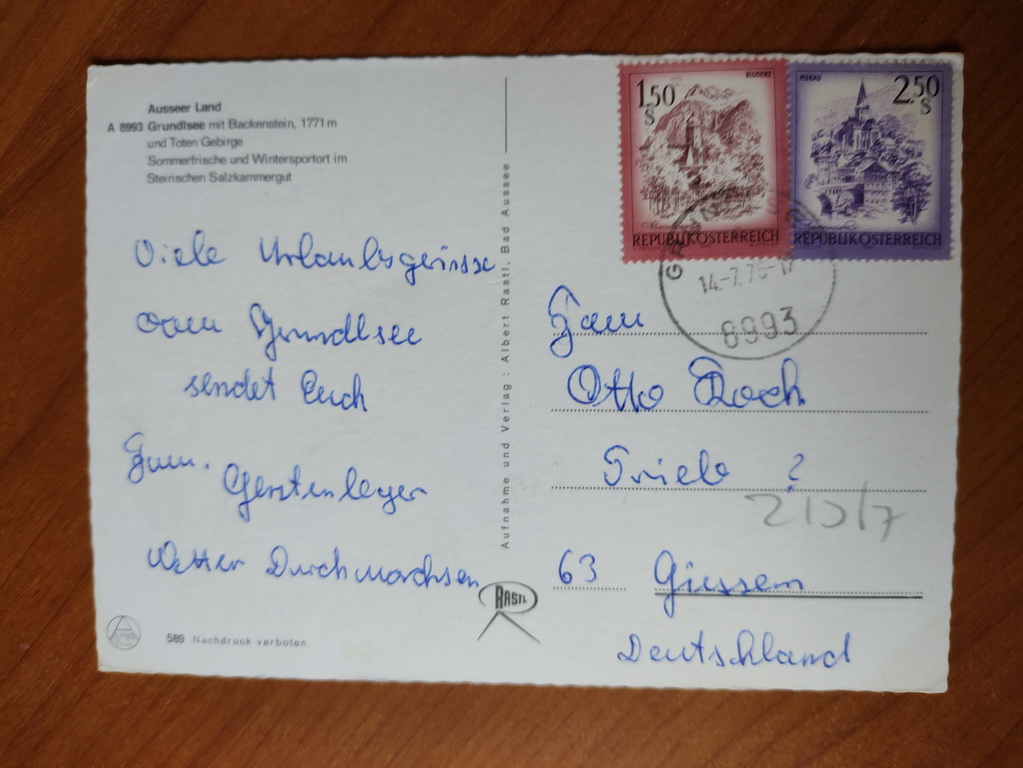 Ausseer Land
A 8993 Grundlsee mit Backenstein, 1771 m
und Toten Gebirge
Sommerfrische und Wintersportort im
Steirischen Salzkammergut
Viele Urlaubsgrüsse
vom Grundlsee
sendet Euch
Fam. Gerstenleger
Wetter Durchwachsen
589 Nachdruck verboten.
Aufnahme und Verlag: Albert Rastl, Bad Aussee
RASTL
1,50 S
BLUDENZ
REPUBLIK ÖSTERREICH
MURAU
2.50 S
REPUBLIK ÖSTERREICH
14.-7.76-17
8993
Fam
Otto
?
63 Giessen
Deutschland